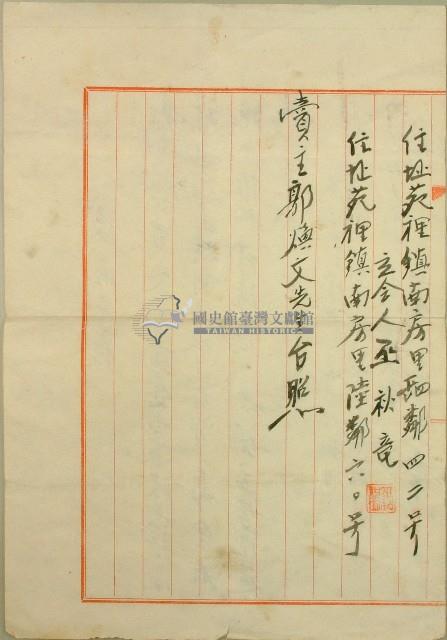 住址苑裡鎮南房里四鄰四二号
立会人巫秋竜
住址苑裡鎮南房里陸鄰六〇号
賣主郭煥文先生台照
國史館臺灣文獻館
TAIWAN HISTORIC